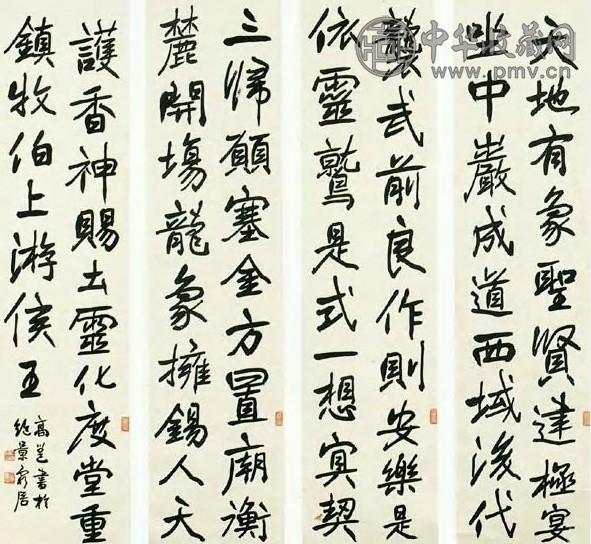 中华收藏网
www.pmv.cn
天地有象聖賢建極宴
幽中巖成道西域後代
襲武前良作則安樂是
依靈鷲是式一想冥契
三歸願塞金方置廟衡
麓開場龍象擁錫人天
護香神賜土靈化度堂重
鎮牧伯上游侯王
高邕書於
景居